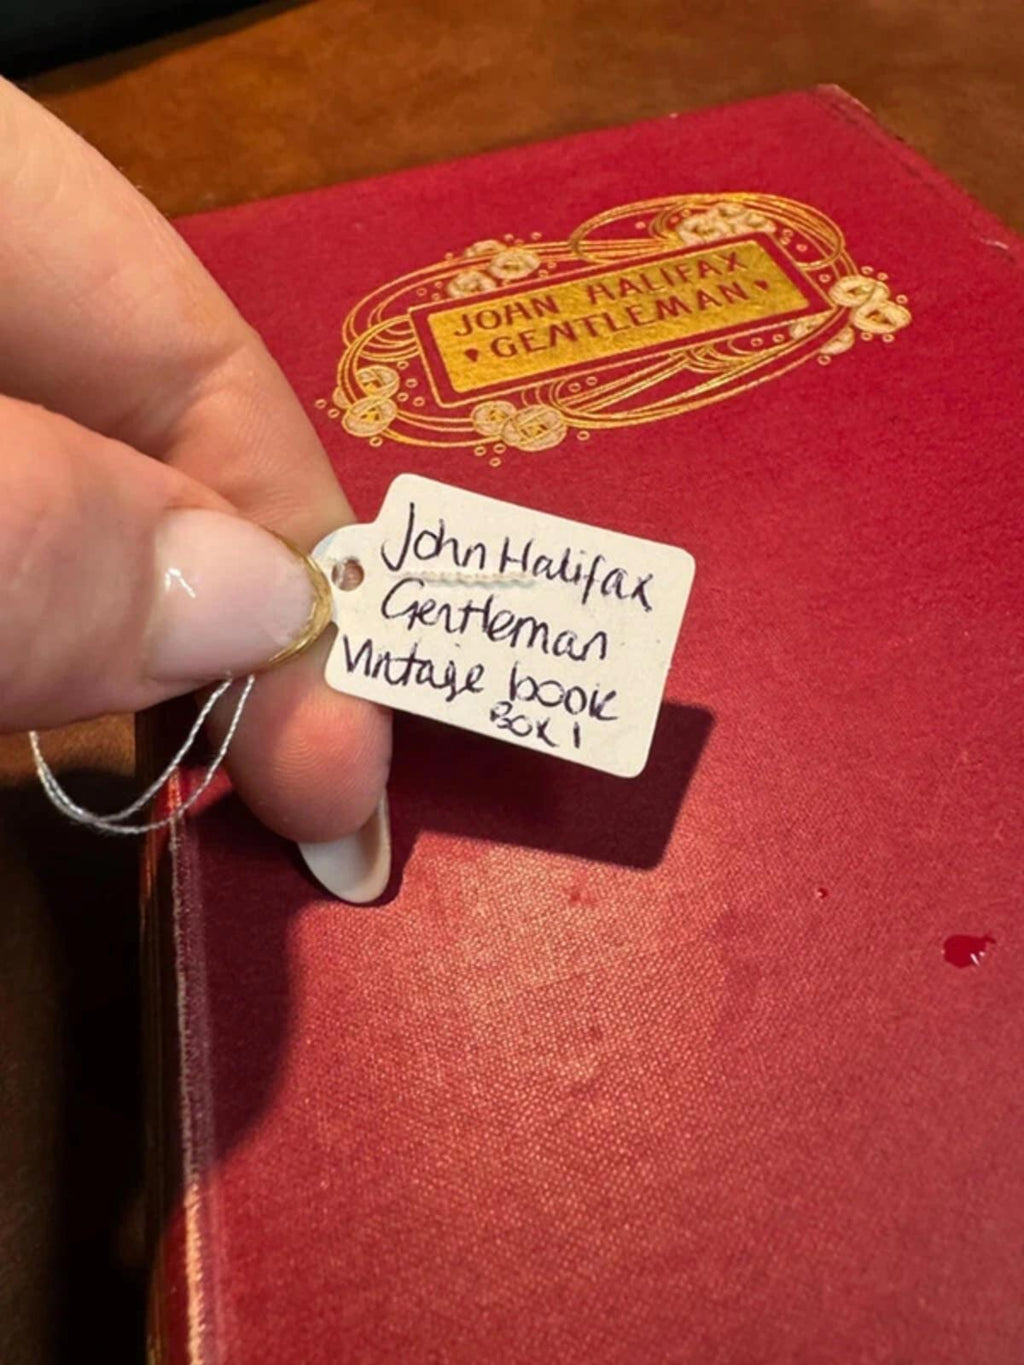 JOHN HALIFAX
GENTLEMAN
John Halifax
Gentleman
Vintage book
BOX 1